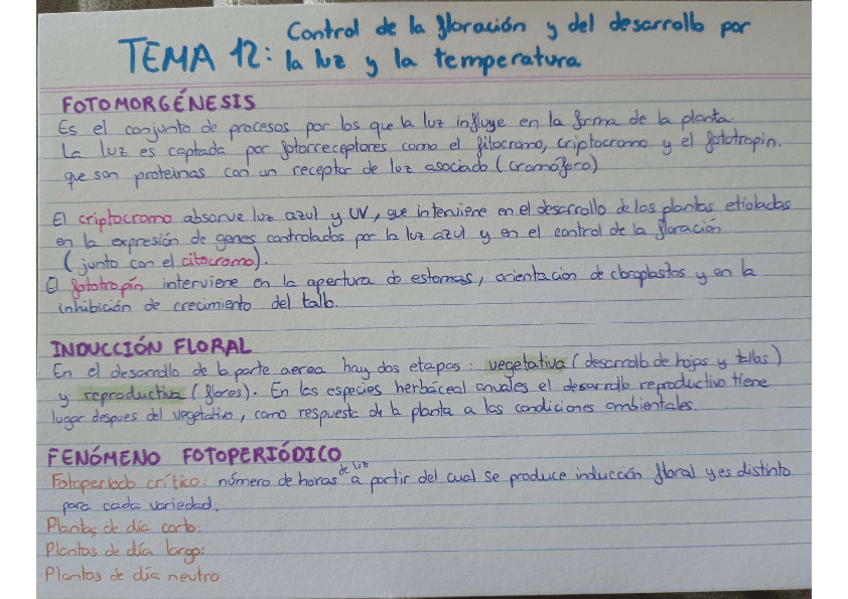 Control de la floración y del desarrollo por
TEMA 12: la luz y la temperatura
FOTOMORGÉNESIS
Es el conjunto de procesos por los que la luz influye en la forma de la planta.
La luz es captada por fotorreceptores como el fitocromo, criptocromo y el fototropin.
que son proteinas con un receptor de luz asociado (cromóforo)
El criptocromo absorve luz azul y UV, que interviene en el desarrollo de las plantas etioladas
en la expresión de genes controlados por la luz azul y en el control de la floración
(junto con el citocromo).
El fototropín interviene en la apertura de estomas, orientación de cloroplastos y en la
inhibición de crecimiento del tallo.
INDUCCIÓN FLORAL
En el desarrollo de la parte aerea hay dos etapas: vegetativa (desarrollo de hojas y tallos)
y reproductiva (flores). En las especies herbáceal anuales el desarrollo reproductivo tiene
lugar despues del vegetativo, como respuesta de la planta a las condiciones ambientales.
FENÓMENO FOTOPERIÓDICO
Fotoperiodo crítico: número de horas de luz a partir del cual se produce inducción floral y es distinto
para cada variedad.
Plantas de día corto:
Plantas de día largo:
Plantas de día neutro